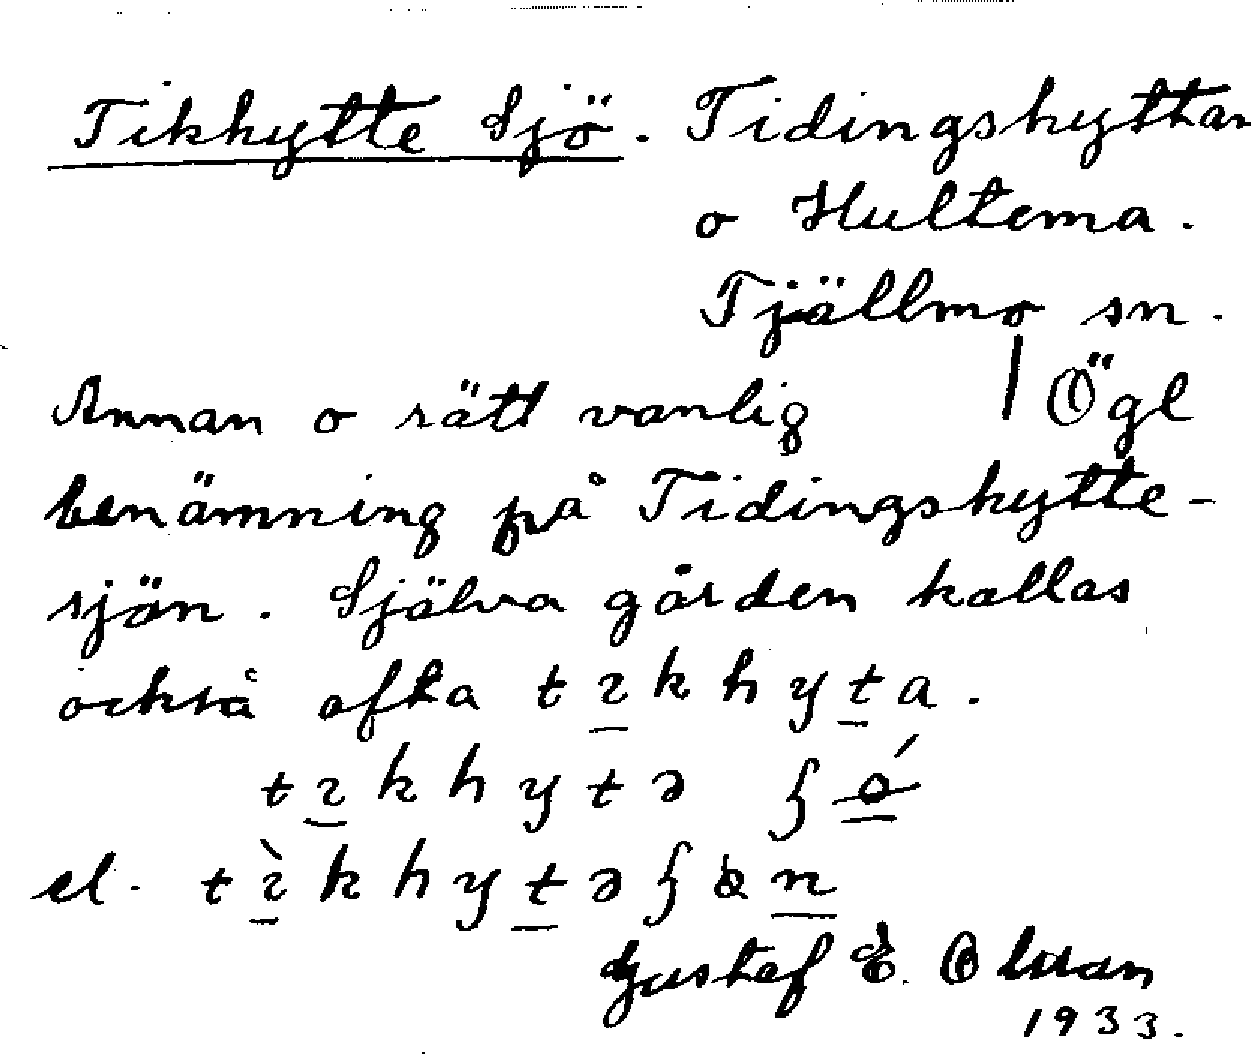 Tikhytte Sjö. Tidingshyttan
o Hultema.
Tjällmo sn.
Annan o rätt vanlig | Ögl
benämning på Tidingshytte-
sjön. Själva gården kallas
också ofta tɩkhyta.
tɩkhytə
el. tɩ̀khytə
Gustaf E.
1933.